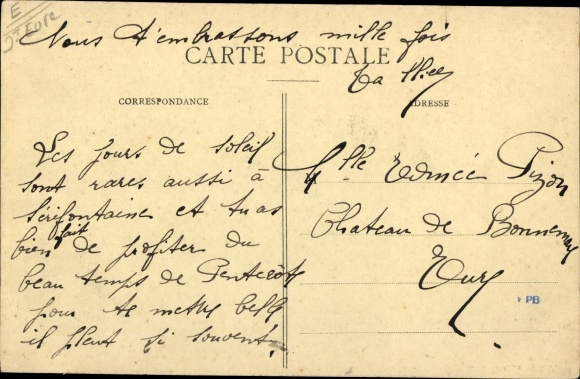 E
Nous t'embrassons mille fois
CARTE POSTALE
Ta
CORRESPONDANCE
ADRESSE
Les jours de soleil
sont rares aussi à
Sérifontaine et tu as
bien fait de profiter du
beau temps de Pentecôte
pour te mettre belle
il pleut si souvent.
Mlle Edmée Pizon
Chateau de Bonnemare
Eure
PB